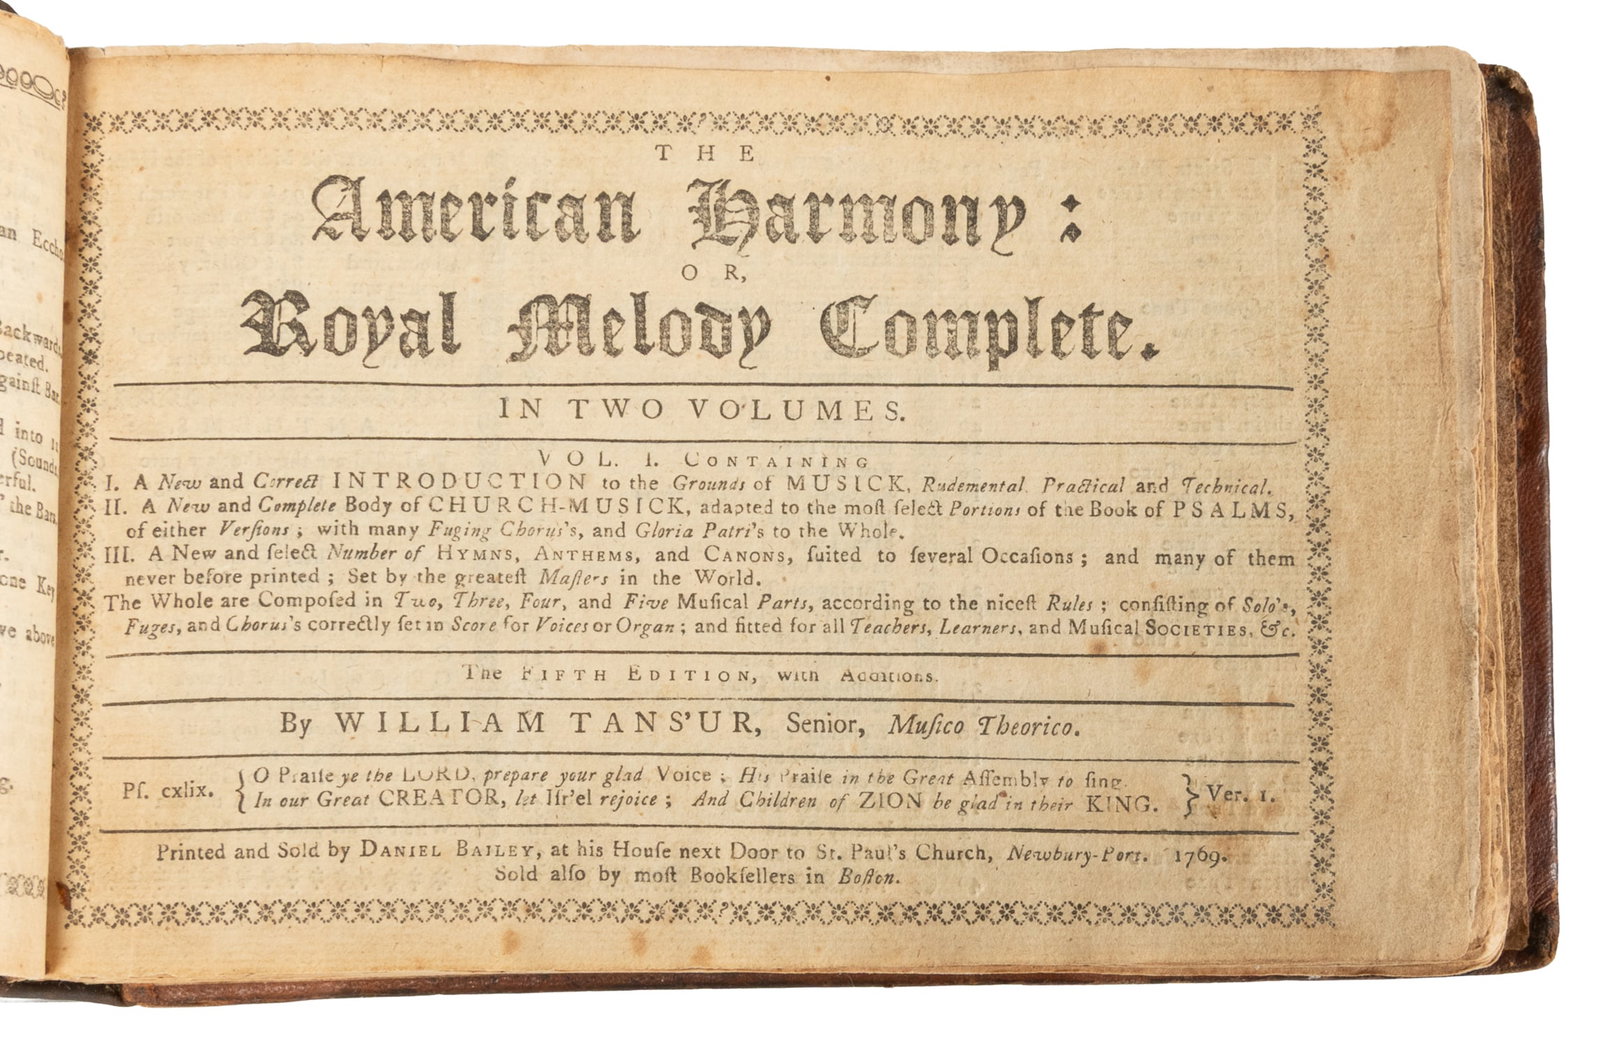 THE
American Harmony:
OR,
Royal Melody Complete.
IN TWO VOLUMES.
VOL. I. CONTAINING
I. A New and Correct INTRODUCTION to the Grounds of MUSICK, Rudemental Practical and Technical.
II. A New and Complete Body of CHURCH-MUSICK, adapted to the moſt ſelect Portions of the Book of PSALMS,
of either Verſions; with many Fuging Chorus's, and Gloria Patri's to the Whole.
III. A New and ſelect Number of HYMNS, ANTHEMS, and CANONS, ſuited to ſeveral Occaſions; and many of them
never before printed; Set by the greateſt Maſters in the World.
The Whole are Compoſed in Two, Three, Four, and Five Muſical Parts, according to the niceſt Rules; conſiſting of Solo's,
Fuges, and Chorus's correctly ſet in Score for Voices or Organ; and fitted for all Teachers, Learners, and Muſical SOCIETIES, &c.
The FIFTH EDITION, with Additions.
By WILLIAM TANS'UR, Senior, Muſico Theorico.
Pſ. cxlix. { O Praiſe ye the LORD, prepare your glad Voice; His Praiſe in the Great Aſſembly to ſing.
In our Great CREATOR, let Iſr'el rejoice; And Children of ZION be glad in their KING. } Ver. 1.
Printed and Sold by DANIEL BAILEY, at his Houſe next Door to St. Paul's Church, Newbury-Port. 1769.
Sold alſo by moſt Bookſellers in Boſton.
an Eccho
Backwards
peated.
gainſt Bar.
into
(Sound
erful.
the Bars
one Key
ve above